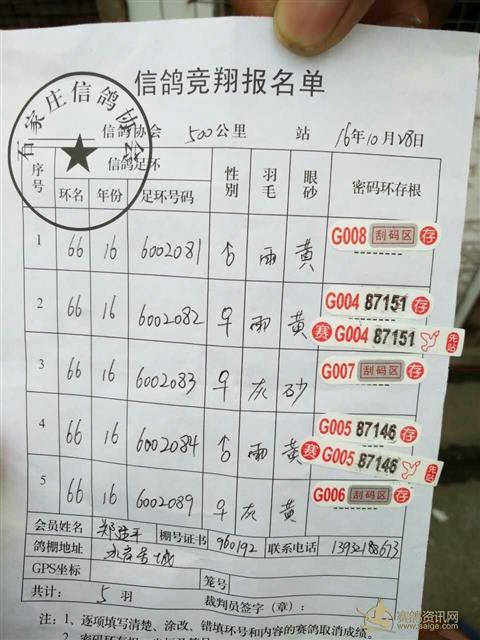 信鸽竞翔报名单
石家庄信鸽协会
信鸽协会 500公里 站 16年10月28日
序号 信鸽足环 性别 羽毛 眼砂 密码环存根
环名 年份 足环号码
1 66 16 6002081 ♂ 雨 黄 G008 刮码区 存
2 66 16 6002082 ♀ 雨 黄 G004 87151 存
赛 G004 87151 先站
3 66 16 6002083 ♀ 灰 砂 G007 刮码区 存
4 66 16 6002084 ♂ 雨 黄 G005 87146 存
赛 G005 87146 先站
5 66 16 6002089 ♀ 灰 黄 G006 刮码区 存
会员姓名 郑 平 棚号证书 960192 联系电话 13932188673
鸽棚地址
GPS坐标 笼号:
共计: 5 羽 裁判员签字(章):
注:1、逐项填写清楚、涂改、错填环号和内容的赛鸽取消成绩。
赛鸽资讯网
www.saige.com